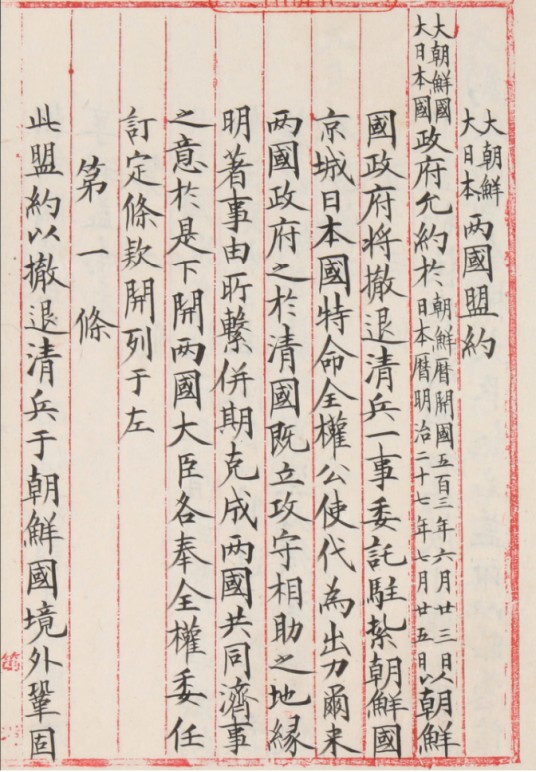 大朝鮮大日本兩國盟約
大朝鮮國大日本國政府允約於朝鮮曆開國五百三年六月廿三日日本曆明治二十七年七月廿五日以朝鮮
國政府將撤退清兵一事委託駐紮朝鮮國
京城日本國特命全權公使代為出力爾來
兩國政府之於清國既立攻守相助之地緣
明著事由所繫併期克成兩國共同濟事
之意於是下開兩國大臣各奉全權委任
訂定條款開列于左
第一條
此盟約以撤退清兵于朝鮮國境外鞏固